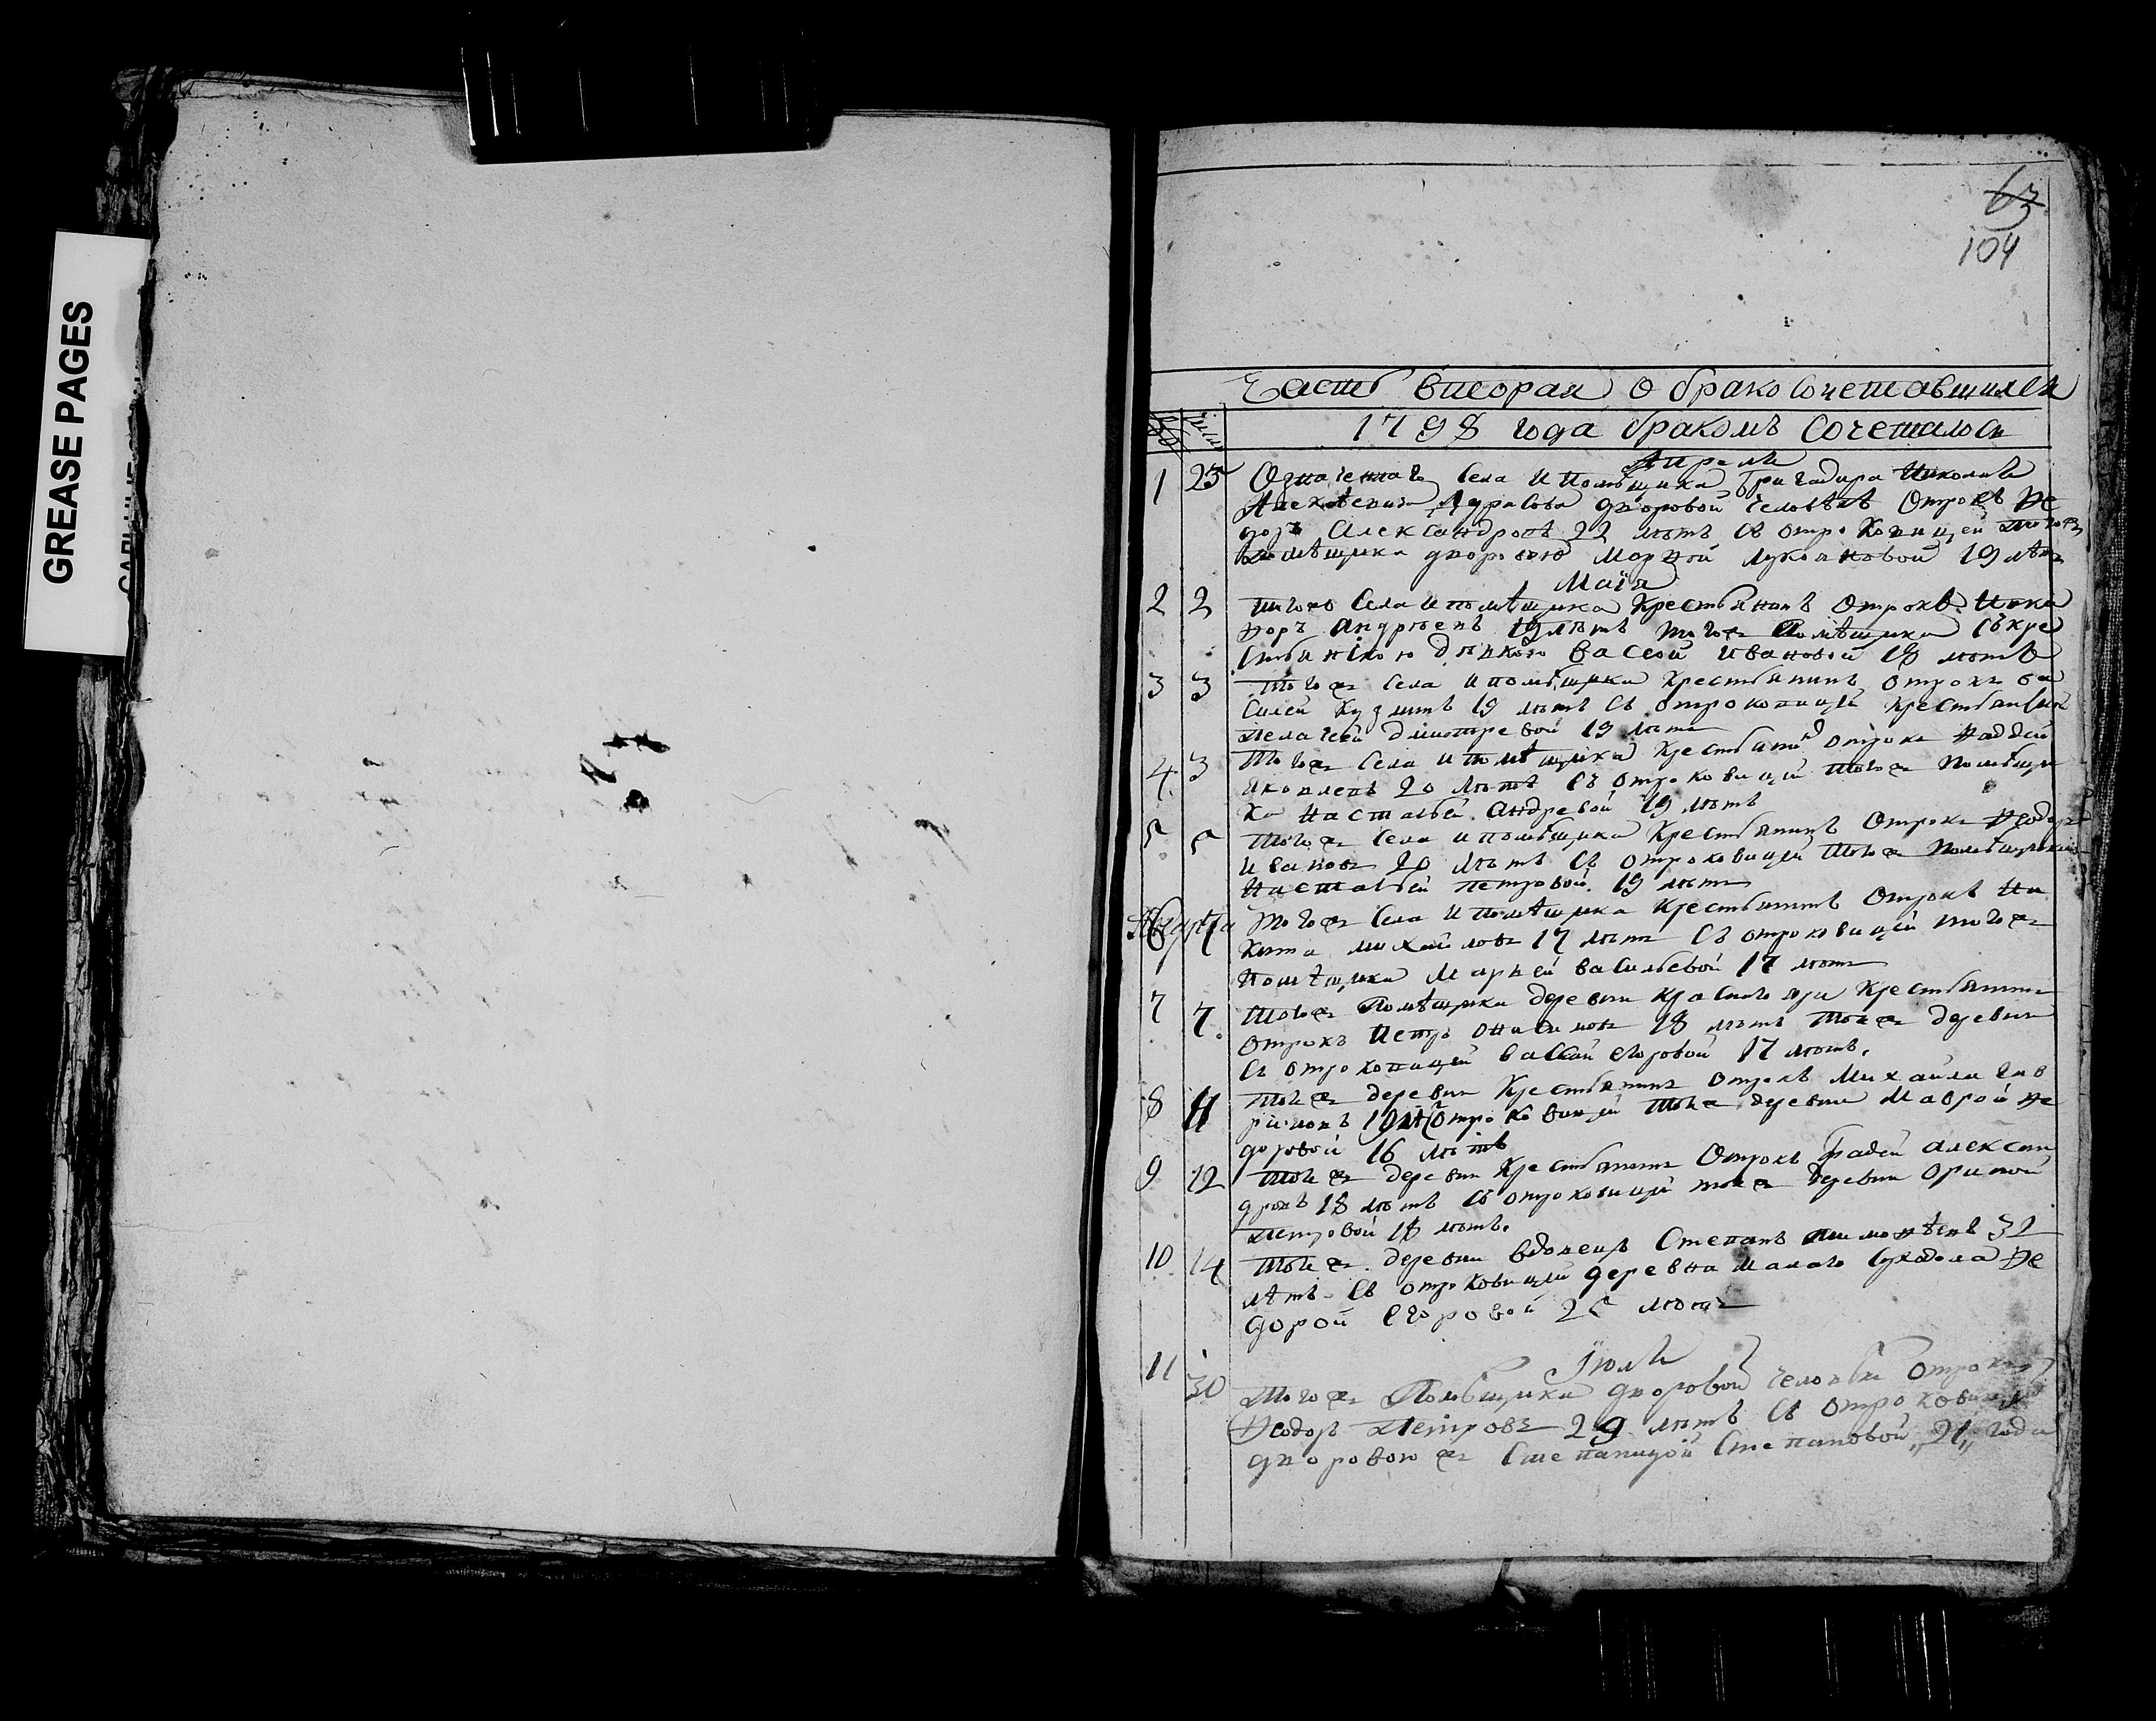 GREASE PAGES
63
104
Часть вторая о бракосочетавшихся
1798 года бракомъ сочеталось
Апреля
1 25 Означеннаго села и помѣщика бригадира Николая
Алексѣевича дворовой человѣкъ отрокъ Фе
доръ Александровъ 22 лѣтъ съ отроковицей тогожъ
помѣщика дворовою Марѳой Лукановой 19 лѣтъ
Маїя
2 2 тогожъ села и помѣщика крестьянинъ отрокъ Ника
норъ Андрѣевъ 19 лѣтъ тогожъ помѣщика съ кре
стьянскою дѣвкою Вассой Ивановой 18 лѣтъ
3 3 тогожъ села и помѣщика крестьянинъ отрокъ Ва
силей Кузминъ 19 лѣтъ съ отроковицей крестьянской
Пелагеей Дмитревой 19 лѣтъ
4 3 тогожъ села и помѣщика крестьянинъ отрокъ Фаддей
Яковлевъ 20 лѣтъ съ отроковицей тогожъ помѣщи
ка Настасьей Андревой 19 лѣтъ
5 5 тогожъ села и помѣщика крестьянинъ отрокъ Феодоръ
Ивановъ 20 лѣтъ съ отроковицей тогожъ помѣщика
Настасьей Петровой 19 лѣтъ
6 7 тогожъ села и помѣщика крестьянинъ отрокъ Ни
кита Михайловъ 17 лѣтъ съ отроковицей тогожъ
помѣщика Марьей Васильевой 17 лѣтъ
7 7 тогожъ помѣщика деревни Краснаго яру крестьянинъ
отрокъ Петръ Онисимовъ 18 лѣтъ тоежъ деревни
съ отроковицей Вассой Егоровой 17 лѣтъ.
8 11 тоежъ деревни крестьянинъ отрокъ Михайла Гав
риловъ 19 лѣ съ отроковицей тоежъ деревни Маврой Фе
доровой 16 лѣтъ
9 12 тоежъ деревни крестьянинъ отрокъ Фадей Алексан
дровъ 18 лѣтъ съ отроковицей тоежъ деревни Ориной
Петровой 18 лѣтъ.
10 14 тоежъ деревни вдовецъ Степанъ Тимофѣевъ 32
лѣтъ съ отроковицей деревни Малаго Суходола Фе
дорой Егоровой 25 лѣтъ
Їюля
11 30 тогожъ помѣщика дворовой человѣкъ отрокъ
Феодоръ Петровъ 29 лѣтъ съ отроковицей
дворовоюжъ Степанидой Степановой „21„ года